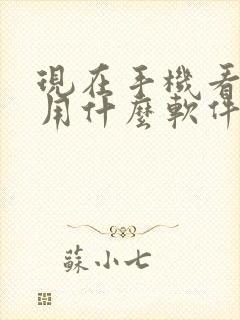 現在手機看
用什麼軟件
蘇小七